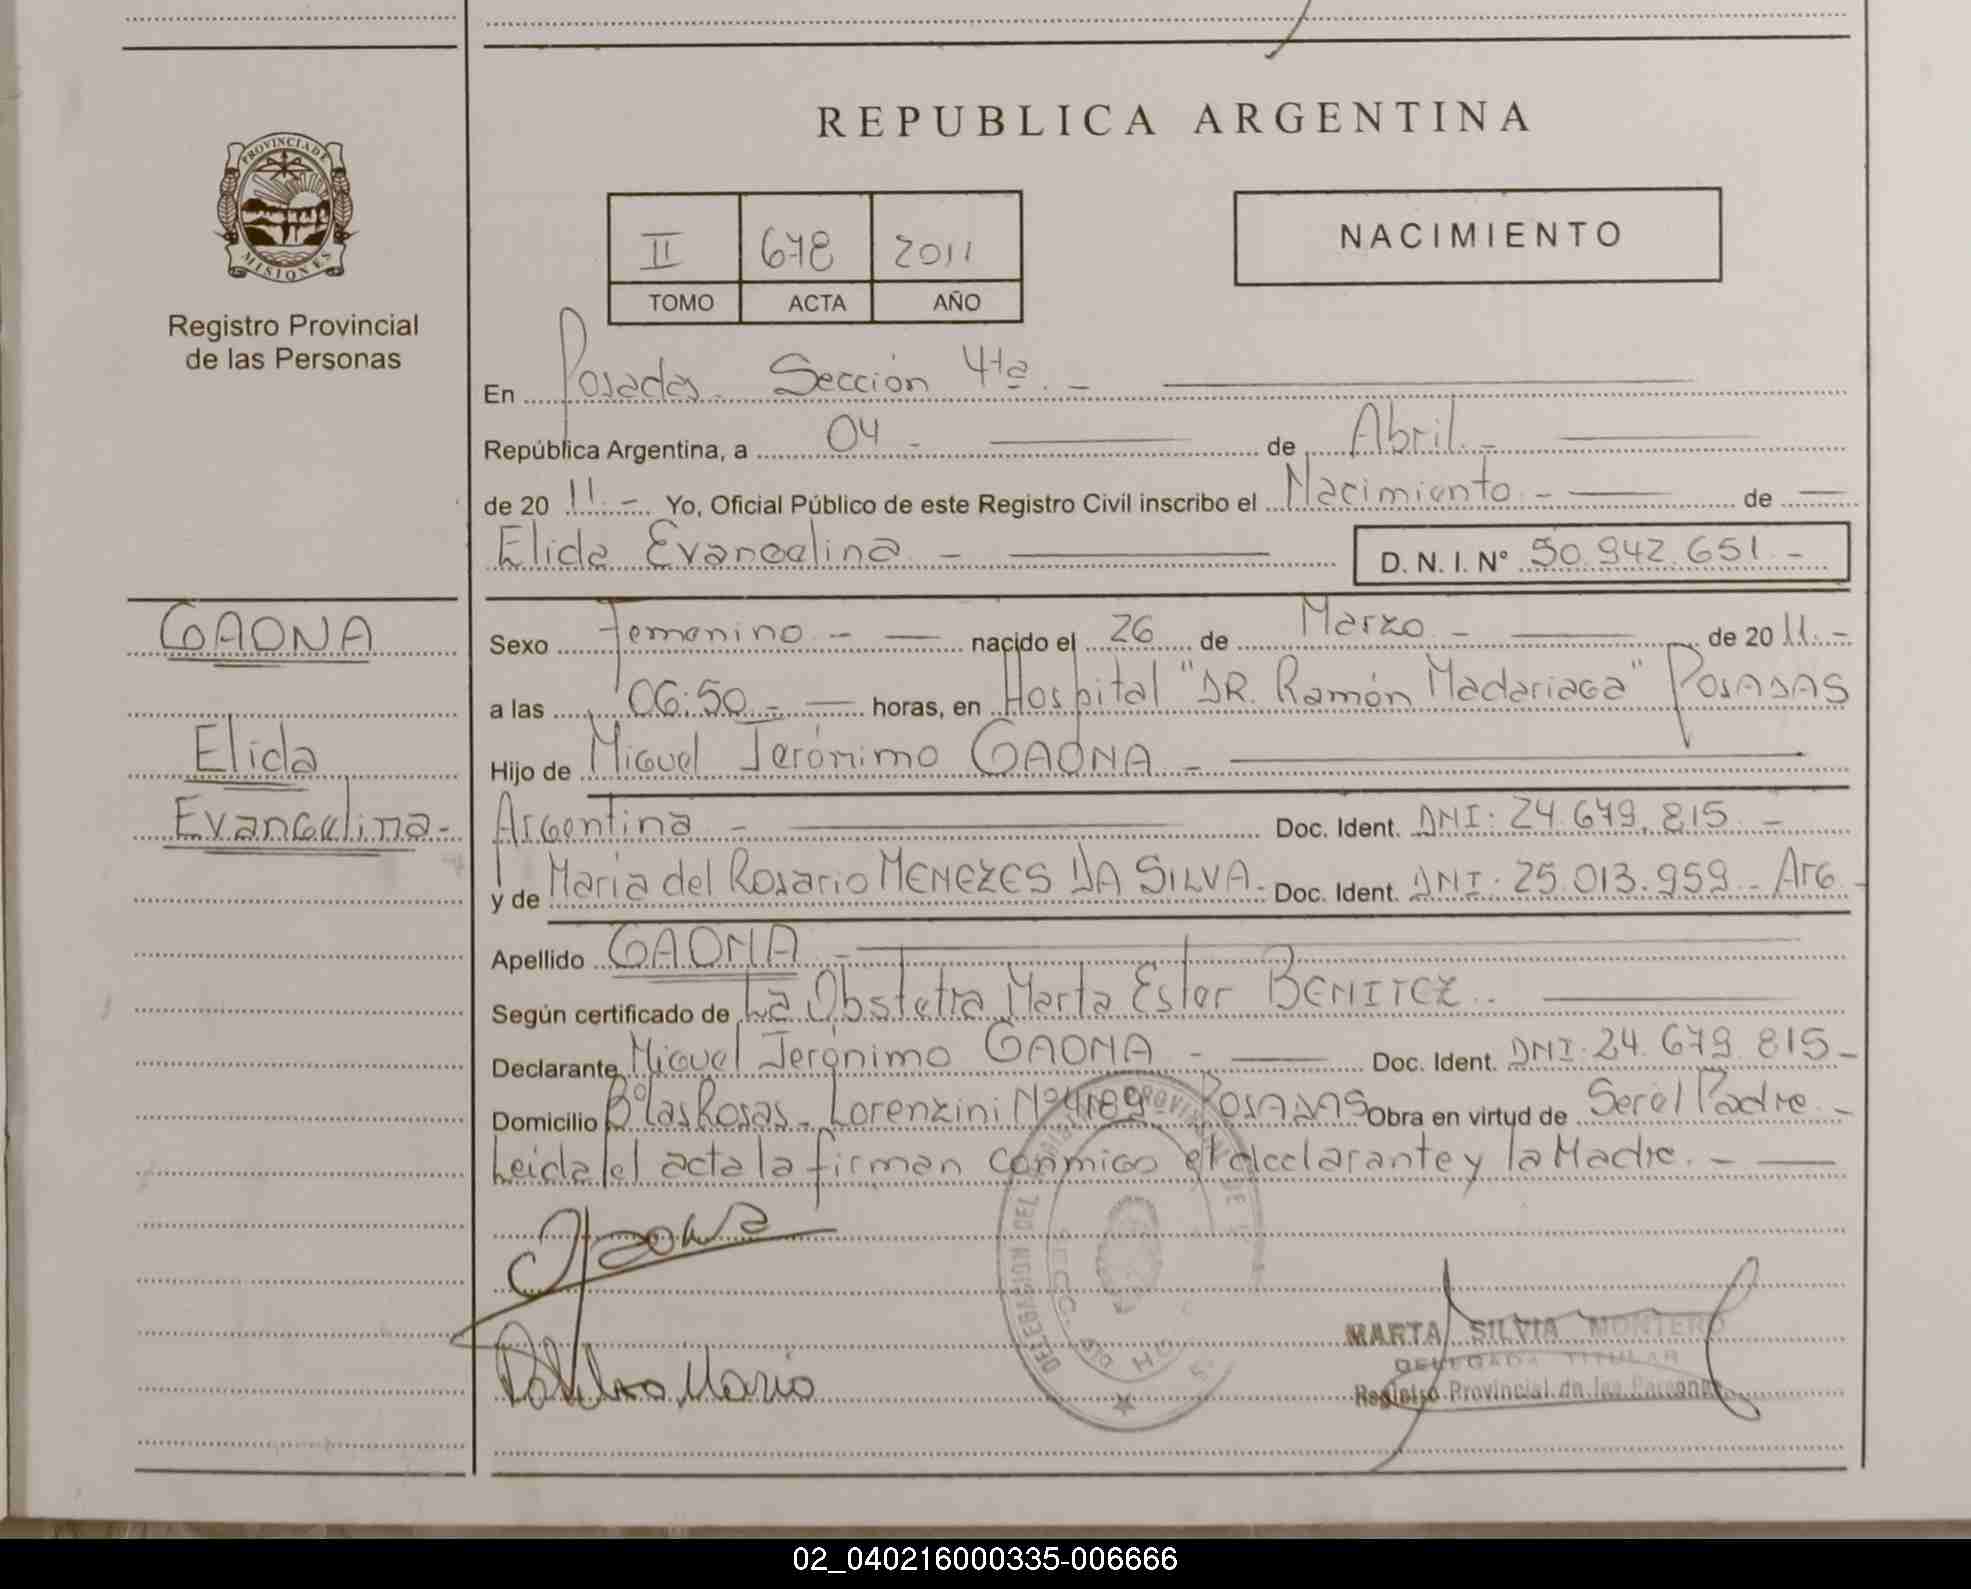 REPUBLICA ARGENTINA
PROVINCIA DE
MISIONES
Registro Provincial
de las Personas
II 678 2011
TOMO ACTA AÑO
NACIMIENTO
En Posadas Sección 4ta. -
República Argentina, a 04 - de Abril. -
de 20 11. - Yo, Oficial Público de este Registro Civil inscribo el Nacimiento - de
Elida Evangelina - D. N. I. N° 50.942.651 -
GAONA
Elida
Evangelina-
Sexo Femenino - nacido el 26 de Marzo - de 20 11. -
a las 06:50 - horas, en Hospital "DR. Ramón Madariaga" POSADAS
Hijo de Miguel Jerónimo GAONA -
Argentina - Doc. Ident. DNI: 24.679.815 -
y de María del Rosario MENEZES DA SILVA- Doc. Ident. DNI: 25.013.959 - Arg -
Apellido GAONA -
Según certificado de La Obstetra Marta Ester BENITEZ.
Declarante Miguel Jerónimo GAONA - Doc. Ident. DNI: 24.679.815 -
Domicilio B° las Rosas - Lorenzini N° 4189 POSADAS Obra en virtud de Ser el Padre -
Leida el acta la firman conmigo el declarante y la Madre. -
DELEGACION DEL PROVINCIAL DE
MARTA SILVIA MONTERO
DELEGADA TITULAR
Registro Provincial de las Personas
02_040216000335-006666